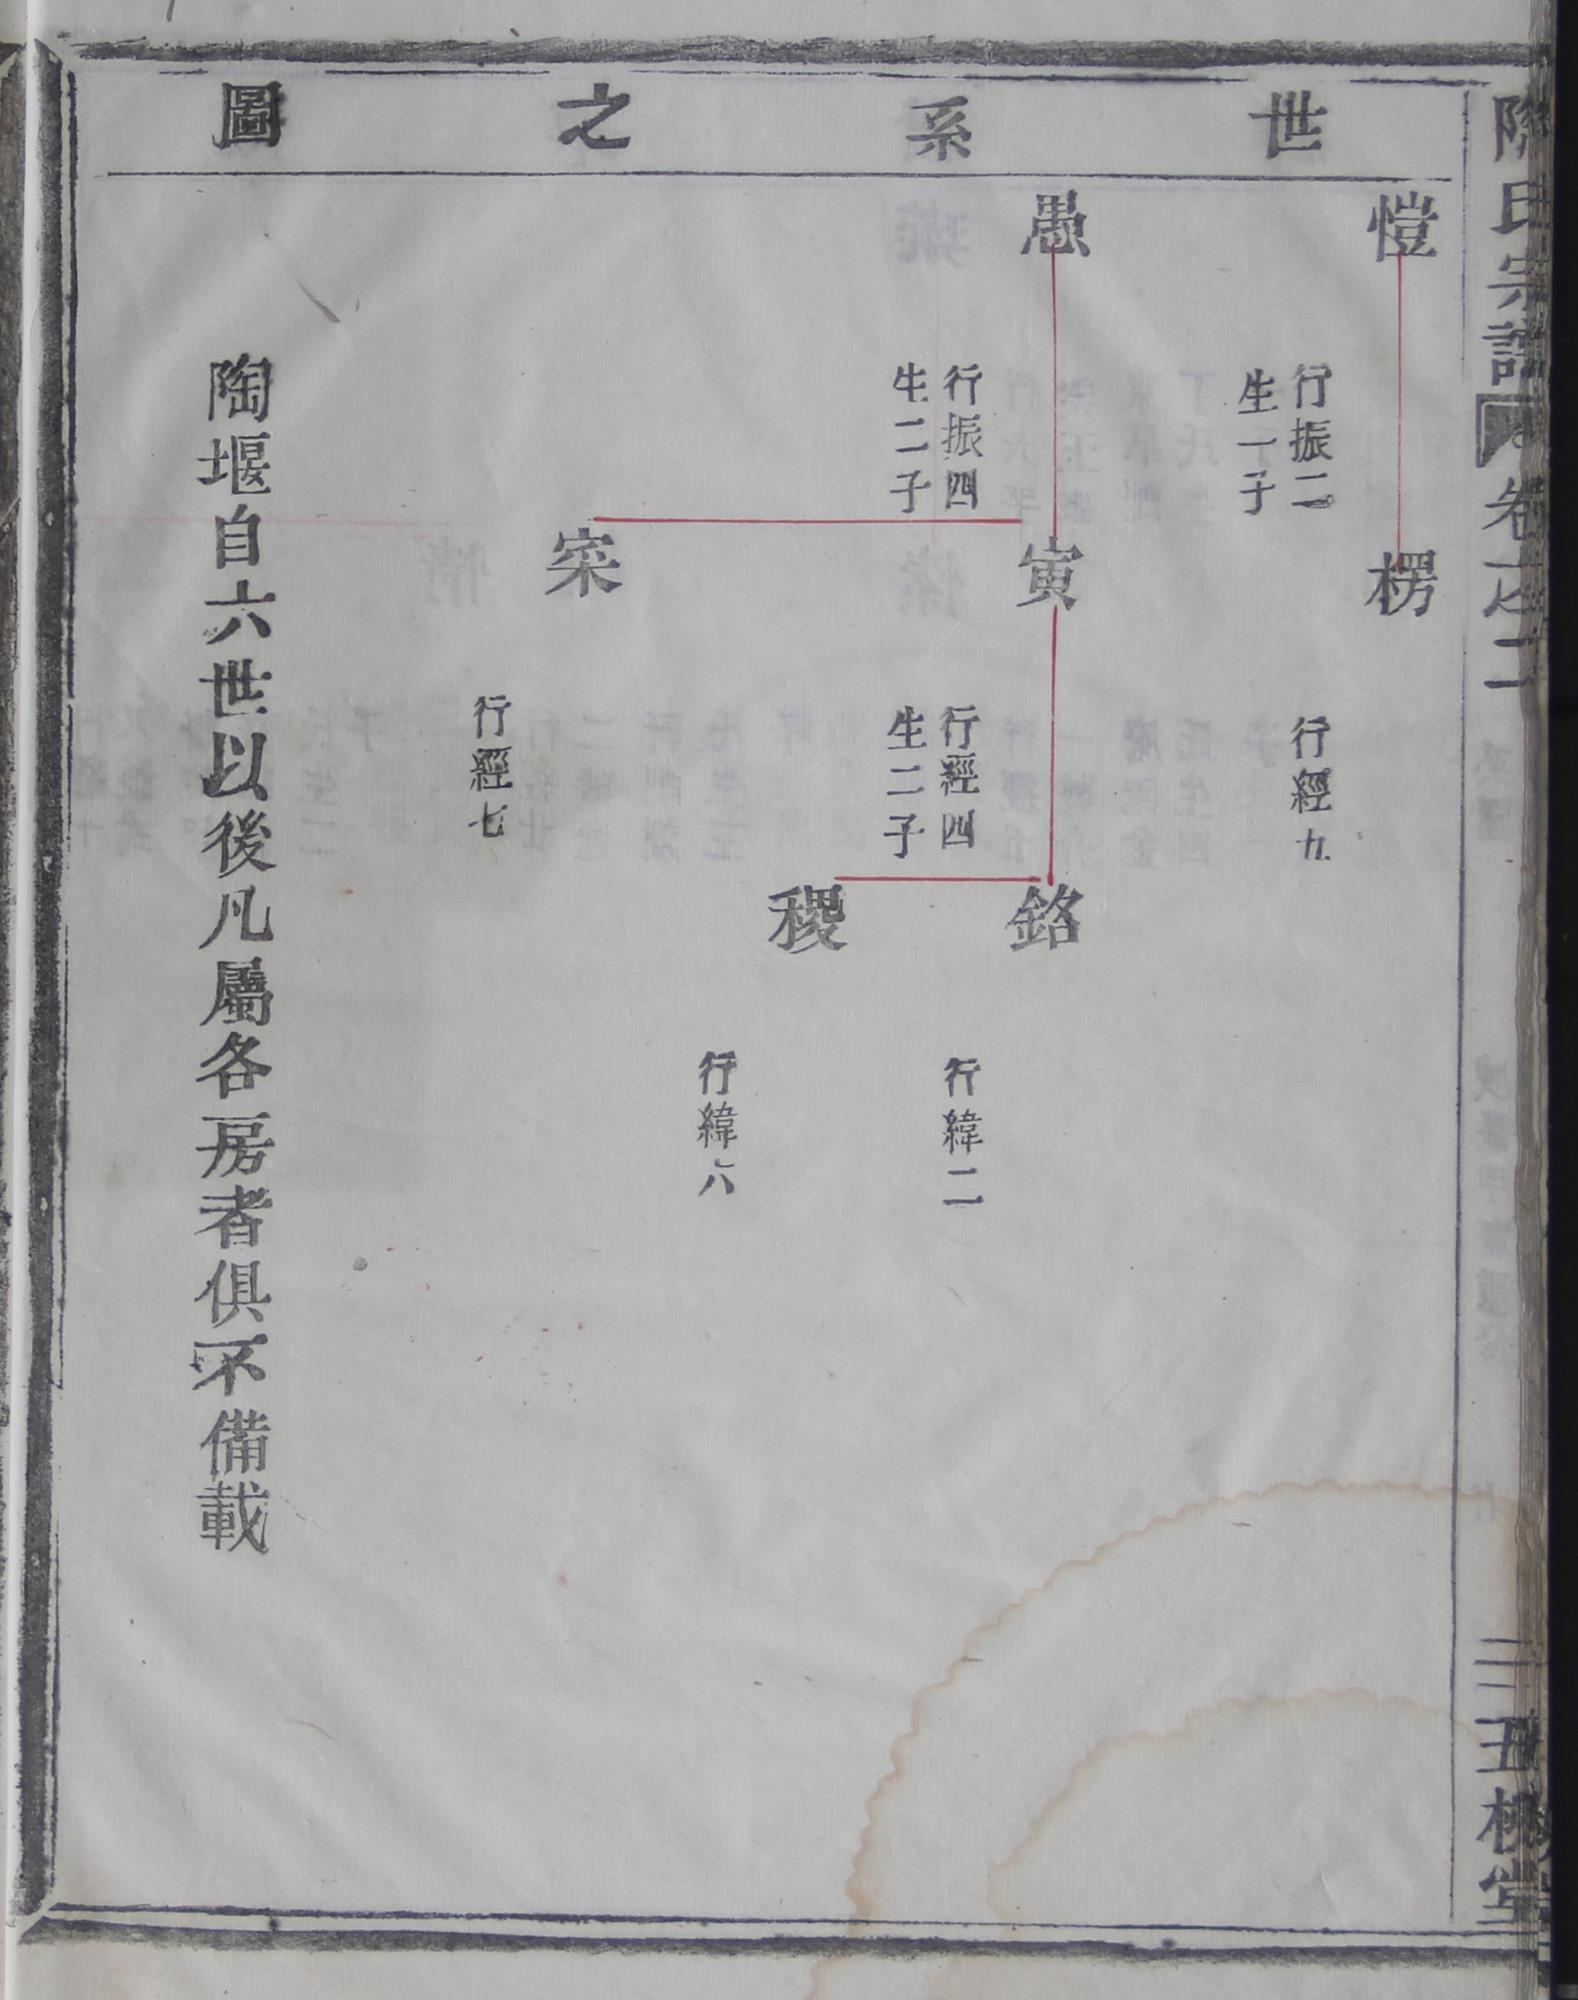 陶氏宗譜
卷之二
五柳堂
世系之圖
愷
行振二
生一子
楞
行經九
愚
行振四
生二子
寅
行經四
生二子
銘
行緯二
稷
行緯六
寀
行經七
陶堰自六世以後凡屬各房者俱不備載